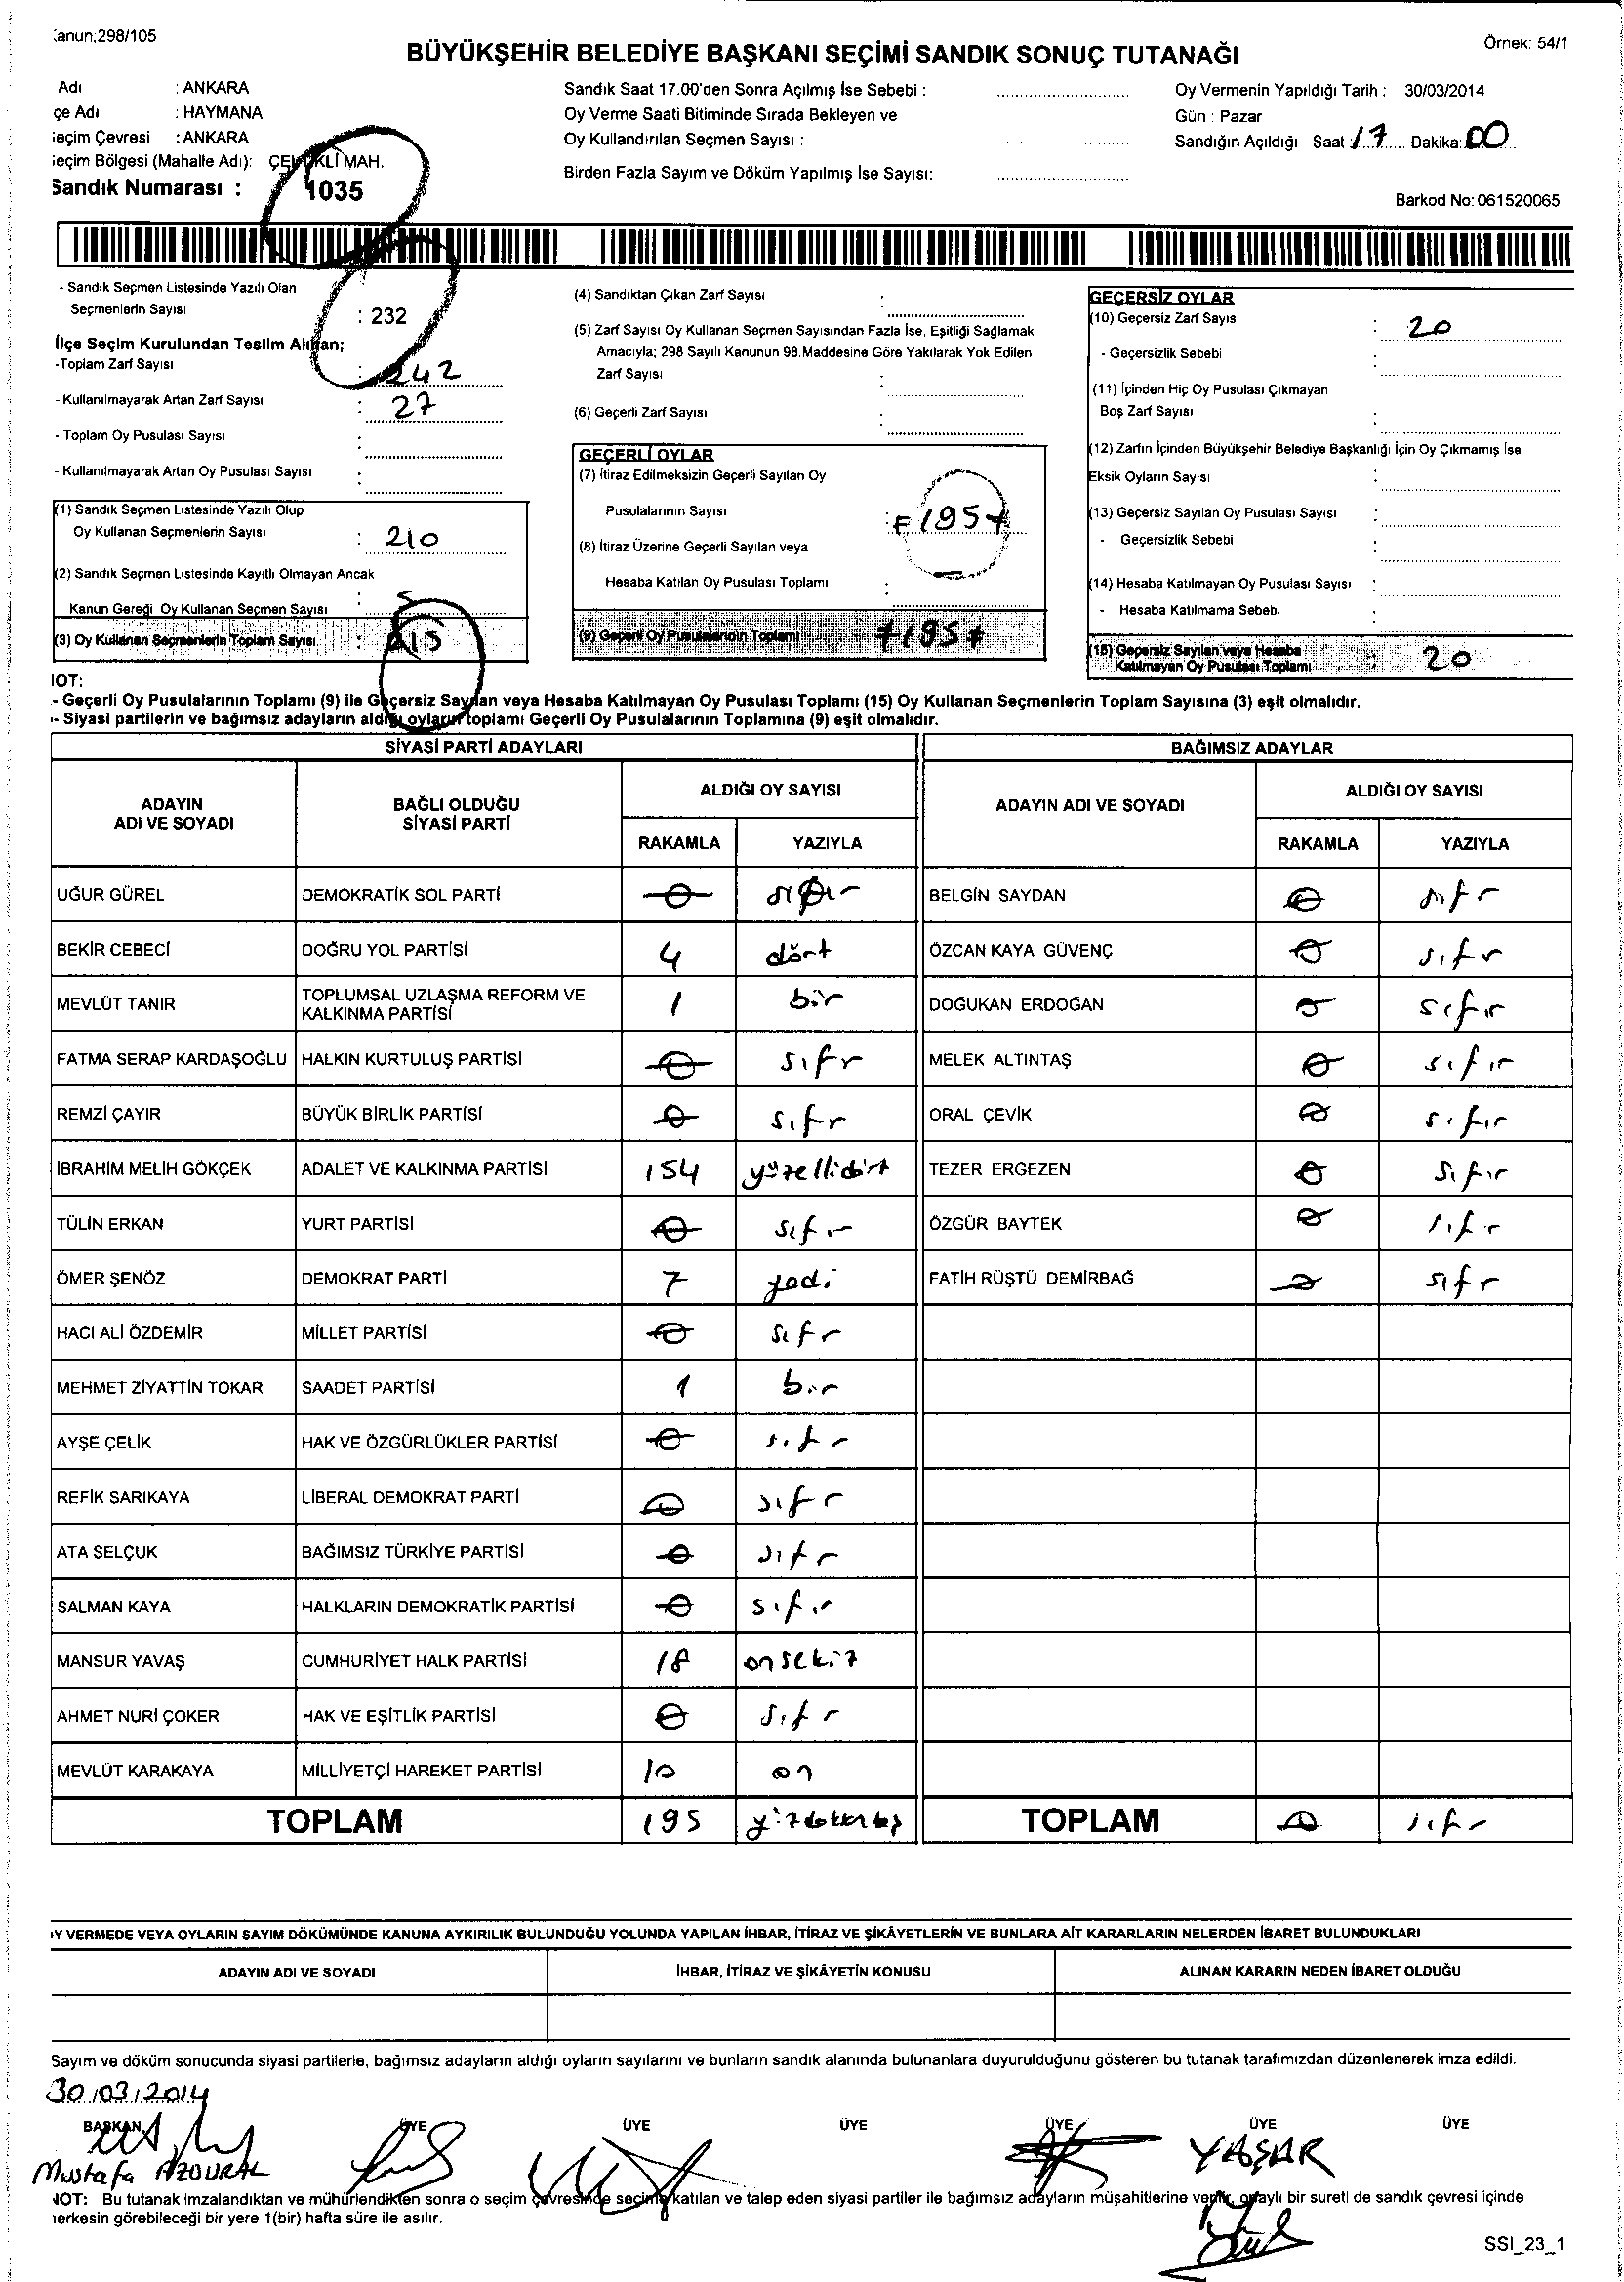 Kanun;298/105
Örnek: 54/1
BÜYÜKŞEHİR BELEDİYE BAŞKANI SEÇİMİ SANDIK SONUÇ TUTANAĞI
Adı : ANKARA
çe Adı : HAYMANA
eçim Çevresi : ANKARA
eçim Bölgesi (Mahalle Adı): MAH.
Sandık Numarası : 1035
Sandık Saat 17.00'den Sonra Açılmış İse Sebebi :
Oy Verme Saati Bitiminde Sırada Bekleyen ve
Oy Kullandırılan Seçmen Sayısı :
Birden Fazla Sayım ve Döküm Yapılmış İse Sayısı:
Oy Vermenin Yapıldığı Tarih : 30/03/2014
Gün : Pazar
Sandığın Açıldığı Saat 17 Dakika: 00
Barkod No: 061520065
- Sandık Seçmen Listesinde Yazılı Olan
Seçmenlerin Sayısı : 232
İlçe Seçim Kurulundan Teslim Alınan;
-Toplam Zarf Sayısı : 242
- Kullanılmayarak Artan Zarf Sayısı : 27
- Toplam Oy Pusulası Sayısı :
- Kullanılmayarak Artan Oy Pusulası Sayısı :
(1) Sandık Seçmen Listesinde Yazılı Olup
Oy Kullanan Seçmenlerin Sayısı : 210
(2) Sandık Seçmen Listesinde Kayıtlı Olmayan Ancak
Kanun Gereği Oy Kullanan Seçmen Sayısı : 5
(3) Oy Kullanan Seçmenlerin Toplam Sayısı : 215
(4) Sandıktan Çıkan Zarf Sayısı :
(5) Zarf Sayısı Oy Kullanan Seçmen Sayısından Fazla İse, Eşitliği Sağlamak
Amacıyla; 298 Sayılı Kanunun 98.Maddesine Göre Yakılarak Yok Edilen
Zarf Sayısı :
(6) Geçerli Zarf Sayısı :
GEÇERLİ OYLAR
(7) İtiraz Edilmeksizin Geçerli Sayılan Oy
Pusulalarının Sayısı : 195
(8) İtiraz Üzerine Geçerli Sayılan veya
Hesaba Katılan Oy Pusulası Toplamı :
(9) Geçerli Oy Pusulalarının Toplamı 195
GEÇERSİZ OYLAR
(10) Geçersiz Zarf Sayısı : 20
- Geçersizlik Sebebi :
(11) İçinden Hiç Oy Pusulası Çıkmayan
Boş Zarf Sayısı :
(12) Zarfın İçinden Büyükşehir Belediye Başkanlığı İçin Oy Çıkmamış İse
Eksik Oyların Sayısı :
(13) Geçersiz Sayılan Oy Pusulası Sayısı :
- Geçersizlik Sebebi :
(14) Hesaba Katılmayan Oy Pusulası Sayısı :
- Hesaba Katılmama Sebebi :
(15) Geçersiz Sayılan veya Hesaba
Katılmayan Oy Pusulası Toplamı : 20
NOT:
- Geçerli Oy Pusulalarının Toplamı (9) ile Geçersiz Sayılan veya Hesaba Katılmayan Oy Pusulası Toplamı (15) Oy Kullanan Seçmenlerin Toplam Sayısına (3) eşit olmalıdır.
- Siyasi partilerin ve bağımsız adayların aldığı oyların toplamı Geçerli Oy Pusulalarının Toplamına (9) eşit olmalıdır.
SİYASİ PARTİ ADAYLARI BAĞIMSIZ ADAYLAR
ADAYIN ADI VE SOYADI BAĞLI OLDUĞU SİYASİ PARTİ ALDIĞI OY SAYISI ADAYIN ADI VE SOYADI ALDIĞI OY SAYISI
RAKAMLA YAZIYLA RAKAMLA YAZIYLA
UĞUR GÜREL DEMOKRATİK SOL PARTİ 0 sıfır BELGİN SAYDAN 0 sıfr
BEKİR CEBECİ DOĞRU YOL PARTİSİ 4 dört ÖZCAN KAYA GÜVENÇ 0 sıfr
MEVLÜT TANIR TOPLUMSAL UZLAŞMA REFORM VE KALKINMA PARTİSİ 1 bir DOĞUKAN ERDOĞAN 0 sıfır
FATMA SERAP KARDAŞOĞLU HALKIN KURTULUŞ PARTİSİ 0 sıfr MELEK ALTINTAŞ 0 sıfır
REMZİ ÇAYIR BÜYÜK BİRLİK PARTİSİ 0 sıfr ORAL ÇEVİK 0 sıfır
İBRAHİM MELİH GÖKÇEK ADALET VE KALKINMA PARTİSİ 154 yüzellidört TEZER ERGEZEN 0 sıfır
TÜLİN ERKAN YURT PARTİSİ 0 sıfır ÖZGÜR BAYTEK 0 sıfr
ÖMER ŞENÖZ DEMOKRAT PARTİ 7 yedi FATİH RÜŞTÜ DEMİRBAĞ 0 sıfr
HACI ALİ ÖZDEMİR MİLLET PARTİSİ 0 sıfr
MEHMET ZİYATTİN TOKAR SAADET PARTİSİ 1 bir
AYŞE ÇELİK HAK VE ÖZGÜRLÜKLER PARTİSİ 0 sıfr
REFİK SARIKAYA LİBERAL DEMOKRAT PARTİ 0 sıfr
ATA SELÇUK BAĞIMSIZ TÜRKİYE PARTİSİ 0 sıfr
SALMAN KAYA HALKLARIN DEMOKRATİK PARTİSİ 0 sıfır
MANSUR YAVAŞ CUMHURİYET HALK PARTİSİ 18 onsekiz
AHMET NURİ ÇOKER HAK VE EŞİTLİK PARTİSİ 0 sıfr
MEVLÜT KARAKAYA MİLLİYETÇİ HAREKET PARTİSİ 10 on
TOPLAM 195 TOPLAM 0 sıfr
Y VERMEDE VEYA OYLARIN SAYIM DÖKÜMÜNDE KANUNA AYKIRILIK BULUNDUĞU YOLUNDA YAPILAN İHBAR, İTİRAZ VE ŞİKÂYETLERİN VE BUNLARA AİT KARARLARIN NELERDEN İBARET BULUNDUKLARI
ADAYIN ADI VE SOYADI İHBAR, İTİRAZ VE ŞİKÂYETİN KONUSU ALINAN KARARIN NEDEN İBARET OLDUĞU
Sayım ve döküm sonucunda siyasi partilerle, bağımsız adayların aldığı oyların sayılarını ve bunların sandık alanında bulunanlara duyurulduğunu gösteren bu tutanak tarafımızdan düzenlenerek imza edildi.
30/03/2014
BAŞKAN ÜYE ÜYE ÜYE ÜYE ÜYE ÜYE
Mustafa YAŞAR
NOT: Bu tutanak imzalandıktan ve mühürlendikten sonra o seçim çevresinde seçime katılan ve talep eden siyasi partiler ile bağımsız adayların müşahitlerine verilir, onaylı bir sureti de sandık çevresi içinde
herkesin görebileceği bir yere 1(bir) hafta süre ile asılır.
SSI_23_1